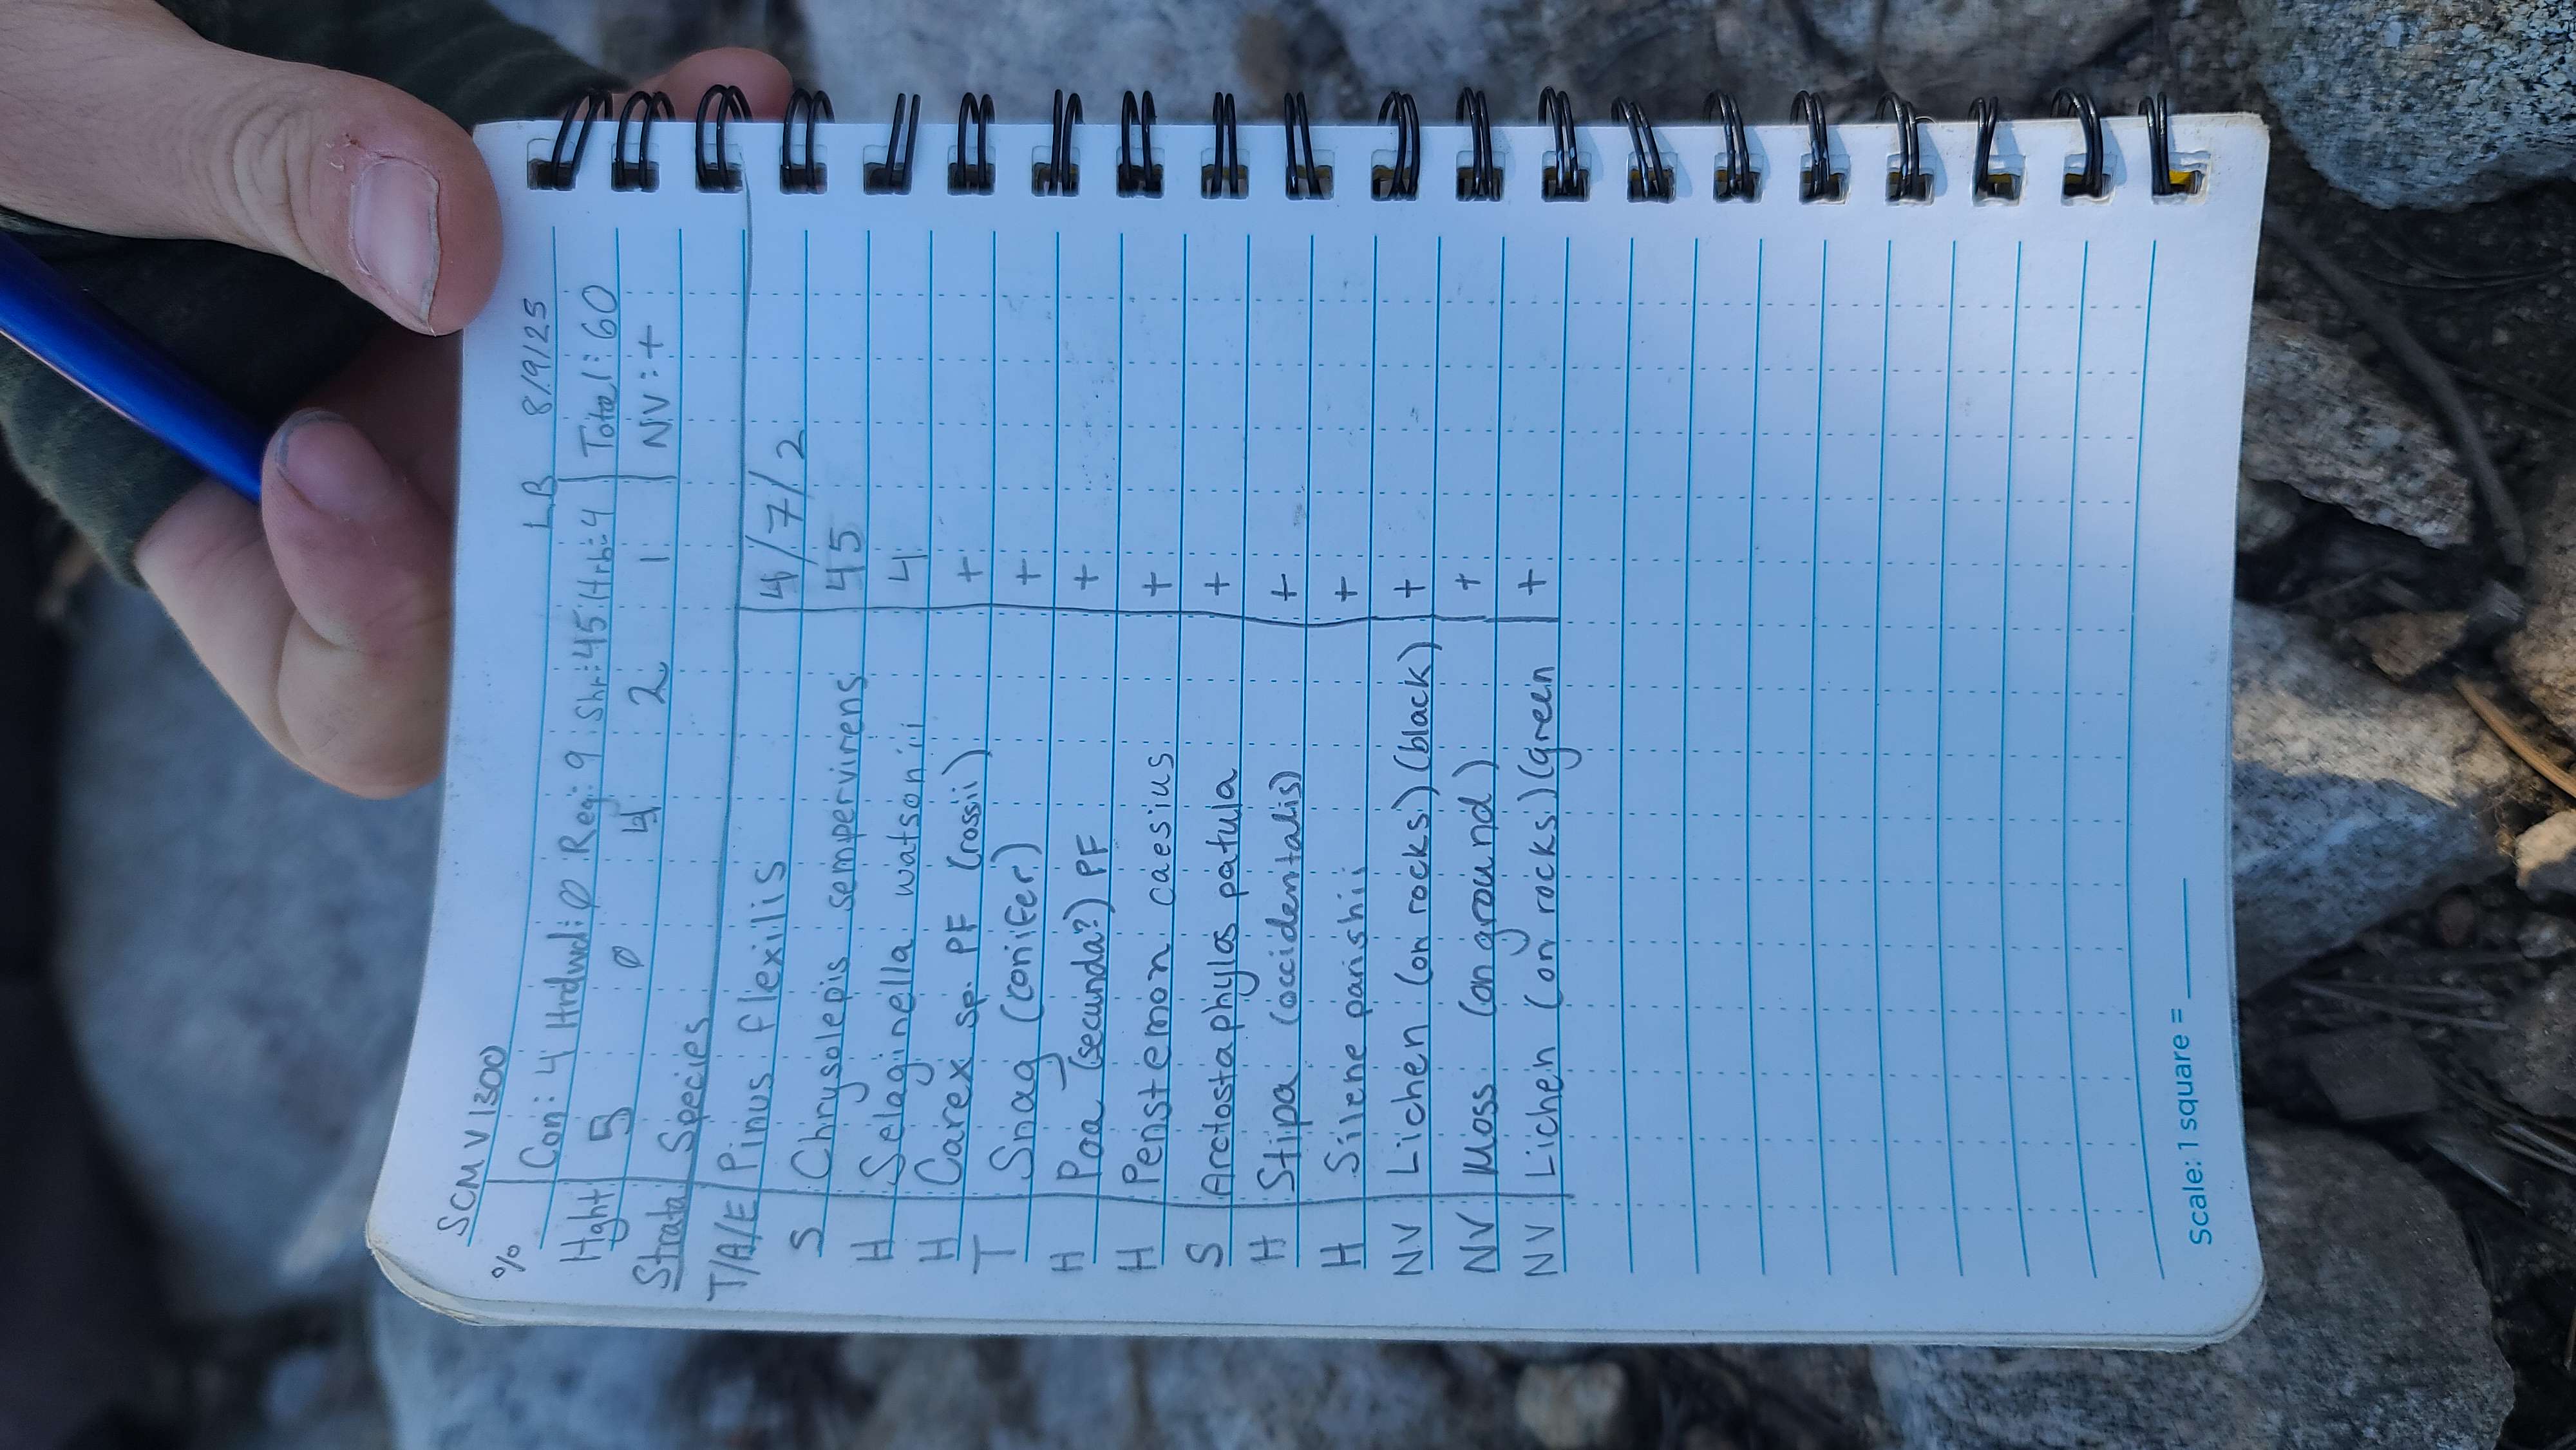 SCMV1300 LB 8/9/25
% Con: 4 Hrdwd: Ø Reg: 9 Shr: 45 Hrb: 4 Total: 60
Hght 5 Ø 4 2 1 NV: +
Strata Species
T/A/E Pinus flexilis 4/7/2
S Chrysolepis sempervirens 45
H Selaginella watsonii 4
H Carex sp. PF (rossii) +
T Snag (conifer) +
H Poa (secunda?) PF +
H Penstemon caesius +
S Arctostaphylos patula +
H Stipa (occidentalis) +
H Silene parishii +
NV Lichen (on rocks) (black) +
NV Moss (on ground) +
NV Lichen (on rocks) (green +
Scale: 1 square = ____